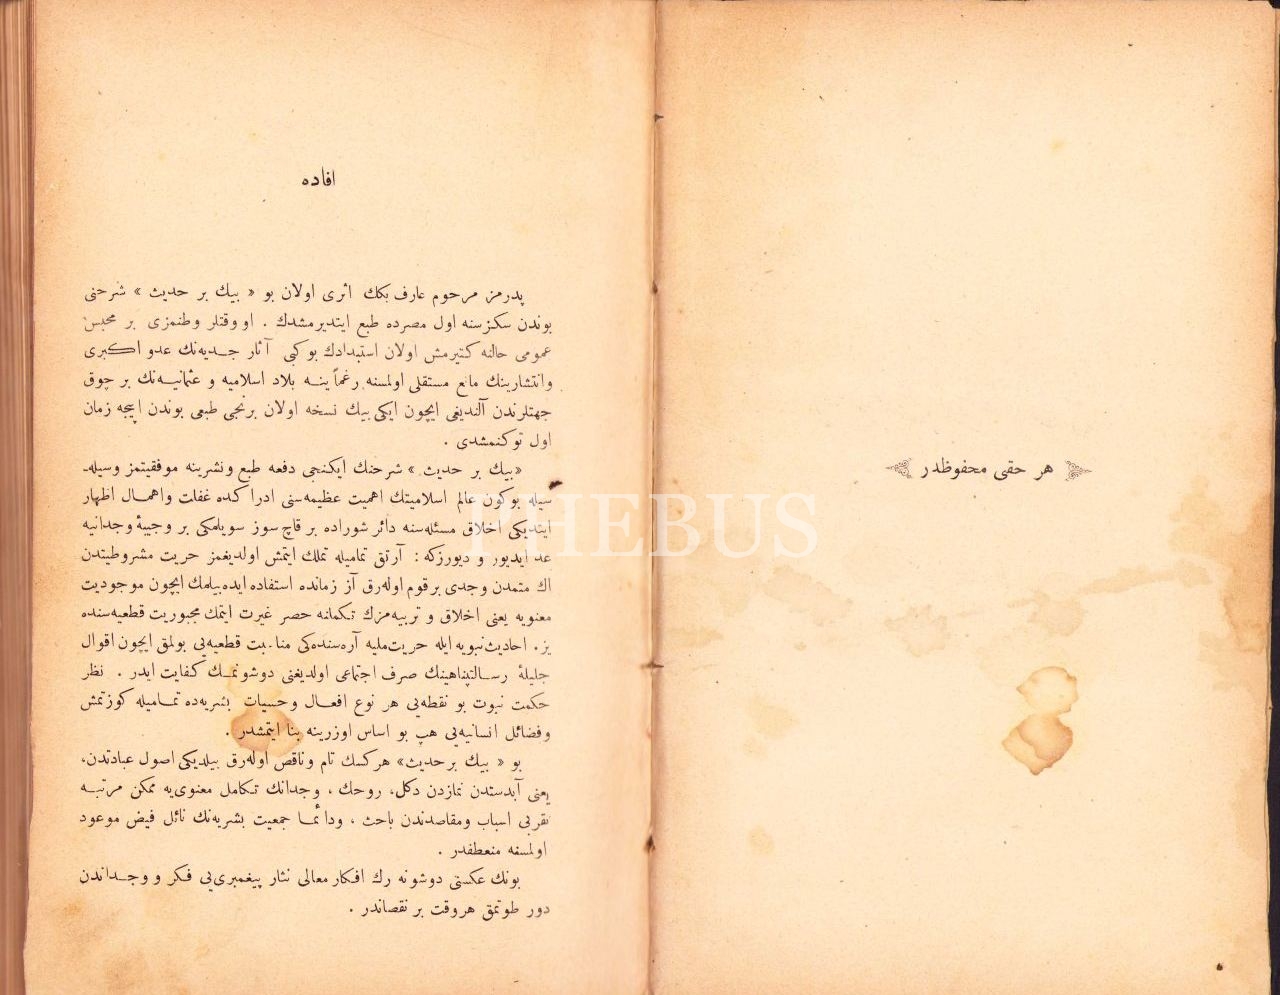 هر حقى محفوظدر
افاده
پدرمز مرحوم عارف بكك اثرى اولان بو « بيك بر حديث » شرحنى
بوندن سكزسنه اول مصرده طبع ايتديرمشدك . او وقتلر وطنمزى بر محبس
عمومى حالنه كتيرمش اولان استبدادك بوكبى آثار جديه‌نك عدو اكبرى
وانتشارينك مانع مستقلى اولمسنه رغماً ينه بلاد اسلاميه و عثمانيه‌نك بر چوق
جهتلرندن آلنديغى ايچون ايكى بيك نسخه اولان برنجى طبعى بوندن اپيجه زمان
اول توكنمشدى .
«بيك بر حديث » شرحنك ايكنجى دفعه طبع ونشرينه موفقيتمز وسيله-
سيله بوكون عالم اسلاميتك اهميت عظيمه‌سنى ادراكده غفلت واهمال اظهار
ايتديكى اخلاق مسئله‌سنه دائر شوراده بر قاچ سوز سويلمكى بر وجيبهٔ وجدانيه
عد ايديور و ديورزكه : آرتق تماميله تملك ايتمش اولديغمز حريت مشروطيتدن
اك متمدن وجدى برقوم اوله‌رق آز زمانده استفاده ايده‌بيلمك ايچون موجوديت
معنويه يعنى اخلاق و تربيه‌مزك تكملنه حصر غيرت ايتمك مجبوريت قطعيه‌سنده
يز . احاديث نبويه ايله حريت مليه آره‌سنده‌كى مناسبت قطعيه‌يى بولمق ايچون اقوال
جليلهٔ رسالتپناهينك صرف اجتماعى اولديغنى دوشونمك كفايت ايدر . نظر
حكمت نبوت بو نقطه‌يى هر نوع افعال وحسيات بشريه‌ده تماميله كوزتمش
وفضائل انسانيه‌يى هپ بو اساس اوزرينه بنا ايتمشدر .
بو « بيك بر حديث» هركسك تام وناقص اوله‌رق بيلديكى اصول عبادتدن،
يعنى آبدستدن نمازدن دكل، روحك ، وجدانك تكامل معنوى‌يه ممكن مرتبه
تقربى اسباب ومقاصدندن باحث ، ودائما جمعيت بشريه‌نك نائل فيض موعود
اولمسنه منعطفدر .
بونك عكسنى دوشونه رك افكار معالى نثار پيغمبرى‌يى فكر و وجداندن
دور طوتمق هروقت بر نقصاندر .
PHEBUS